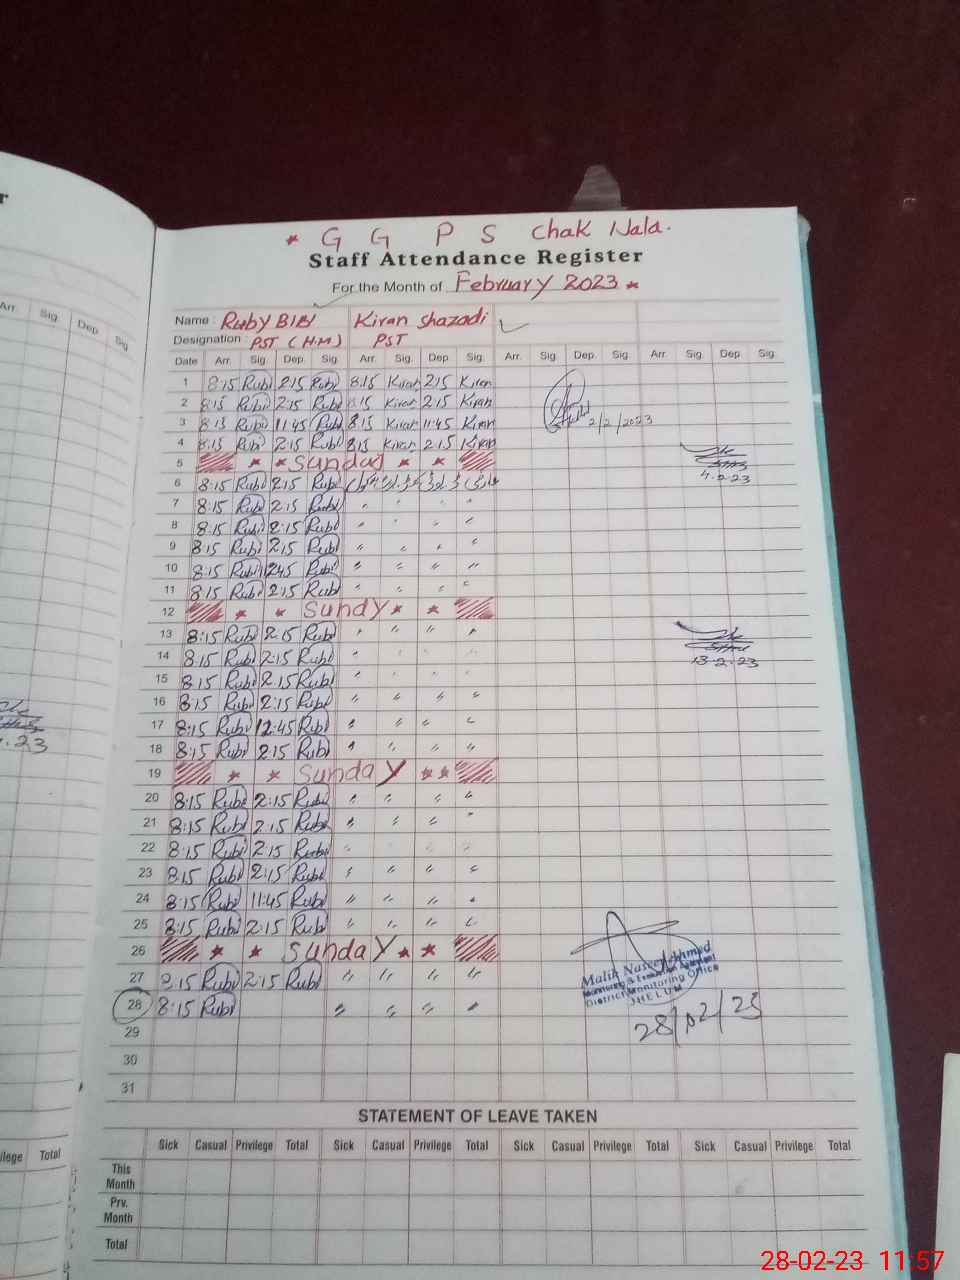 * G G P S Chak Nala.
Staff Attendance Register
For the Month of February 2023 *
Name : Ruby BIBI Kiran Shazadi
Designation PST (H.M) PST
Date Arr. Sig. Dep. Sig. Arr. Sig. Dep. Sig. Arr. Sig. Dep. Sig. Arr. Sig. Dep. Sig.
1 8:15 Rubi 2:15 Rubi 8:15 Kiran 2:15 Kiran
2 8:15 Rubi 2:15 Rubi 8:15 Kiran 2:15 Kiran
3 8:15 Rubi 11:45 Rubi 8:15 Kiran 11:45 Kiran 2/2/2023
4 8:15 Rubi 2:15 Rubi 8:15 Kiran 2:15 Kiran
5 * * Sunday * * 4-2-23
6 8:15 Rubi 2:15 Rubi
7 8:15 Rubi 2:15 Rubi " " " "
8 8:15 Rubi 2:15 Rubi " " " "
9 8:15 Rubi 2:15 Rubi " " " "
10 8:15 Rubi 12:45 Rubi " " " "
11 8:15 Rubi 2:15 Rubi " " " "
12 * * Sundy * *
13 8:15 Rubi 2:15 Rubi " " " "
14 8:15 Rubi 2:15 Rubi " " " " 13-2-23
15 8:15 Rubi 2:15 Rubi " " " "
16 8:15 Rubi 2:15 Rubi " " " "
17 8:15 Rubi 12:45 Rubi " " " "
18 8:15 Rubi 2:15 Rubi " " " "
19 * * Sunday * *
20 8:15 Rubi 2:15 Rubi " " " "
21 8:15 Rubi 2:15 Rubi " " " "
22 8:15 Rubi 2:15 Rubi " " " "
23 8:15 Rubi 2:15 Rubi " " " "
24 8:15 Rubi 11:45 Rubi " " " "
25 8:15 Rubi 2:15 Rubi " " " "
26 * * Sunday * *
27 8:15 Rubi 2:15 Rubi " " " "
28 8:15 Rubi " " " "
Malik Naseer Ahmed
Monitoring & Evaluation Assistant
District Monitoring Office
JHELUM
28/02/23
29
30
31
STATEMENT OF LEAVE TAKEN
Sick Casual Privilege Total Sick Casual Privilege Total Sick Casual Privilege Total Sick Casual Privilege Total
This Month
Prv. Month
Total
Arr. Sig. Dep. Sig.
.23
ilege Total
28-02-23 11:57